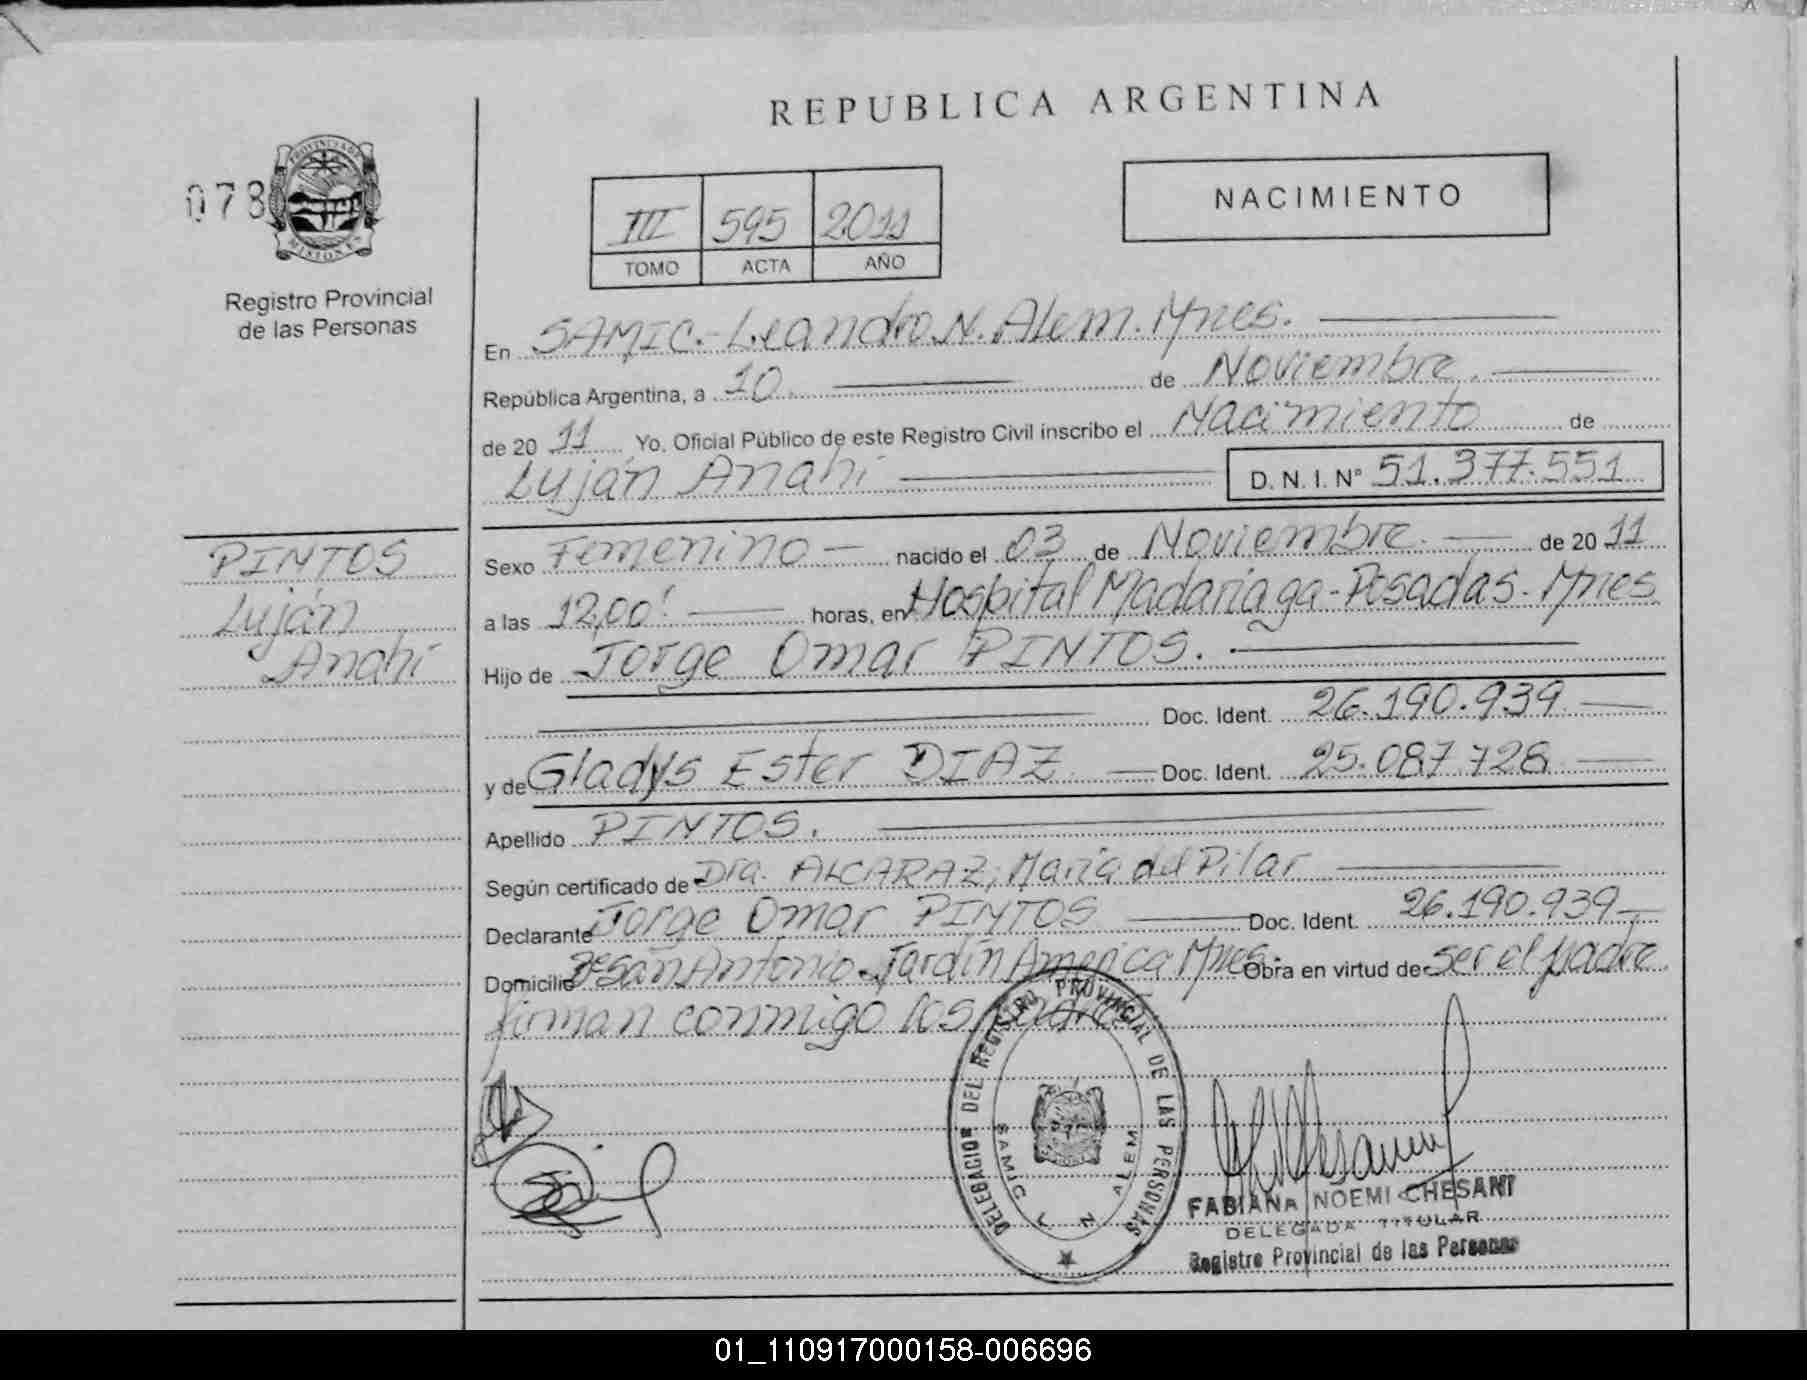 REPUBLICA ARGENTINA
078
PROVINCIA DE
MISIONES
Registro Provincial
de las Personas
NACIMIENTO
III 595 2011
TOMO ACTA AÑO
En SAMIC.-Leandro N. Alem. Mnes.
República Argentina, a 10 de Noviembre
de 20 11 Yo, Oficial Público de este Registro Civil inscribo el Nacimiento de
Luján Anahí D. N. I. Nº 51.377.551
PINTOS
Luján
Anahí
Sexo Femenino nacido el 03 de Noviembre de 20 11
a las 12,00' horas, en Hospital Madariaga-Posadas-Mnes
Hijo de Jorge Omar PINTOS.
Doc. Ident. 26.190.939
y de Gladys Ester DIAZ Doc. Ident. 25.087.728
Apellido PINTOS.
Según certificado de Dra. ALCARAZ, María del Pilar
Declarante Jorge Omar PINTOS Doc. Ident. 26.190.939
Domicilio San Antonio-Jardín América Mnes. Obra en virtud de ser el padre
firman conmigo los
DELEGACION DEL REGISTRO PROVINCIAL DE LAS PERSONAS
SAMIC L N ALEM
FABIANA NOEMI CHESANI
DELEGADA TITULAR
Registro Provincial de las Personas
01_110917000158-006696